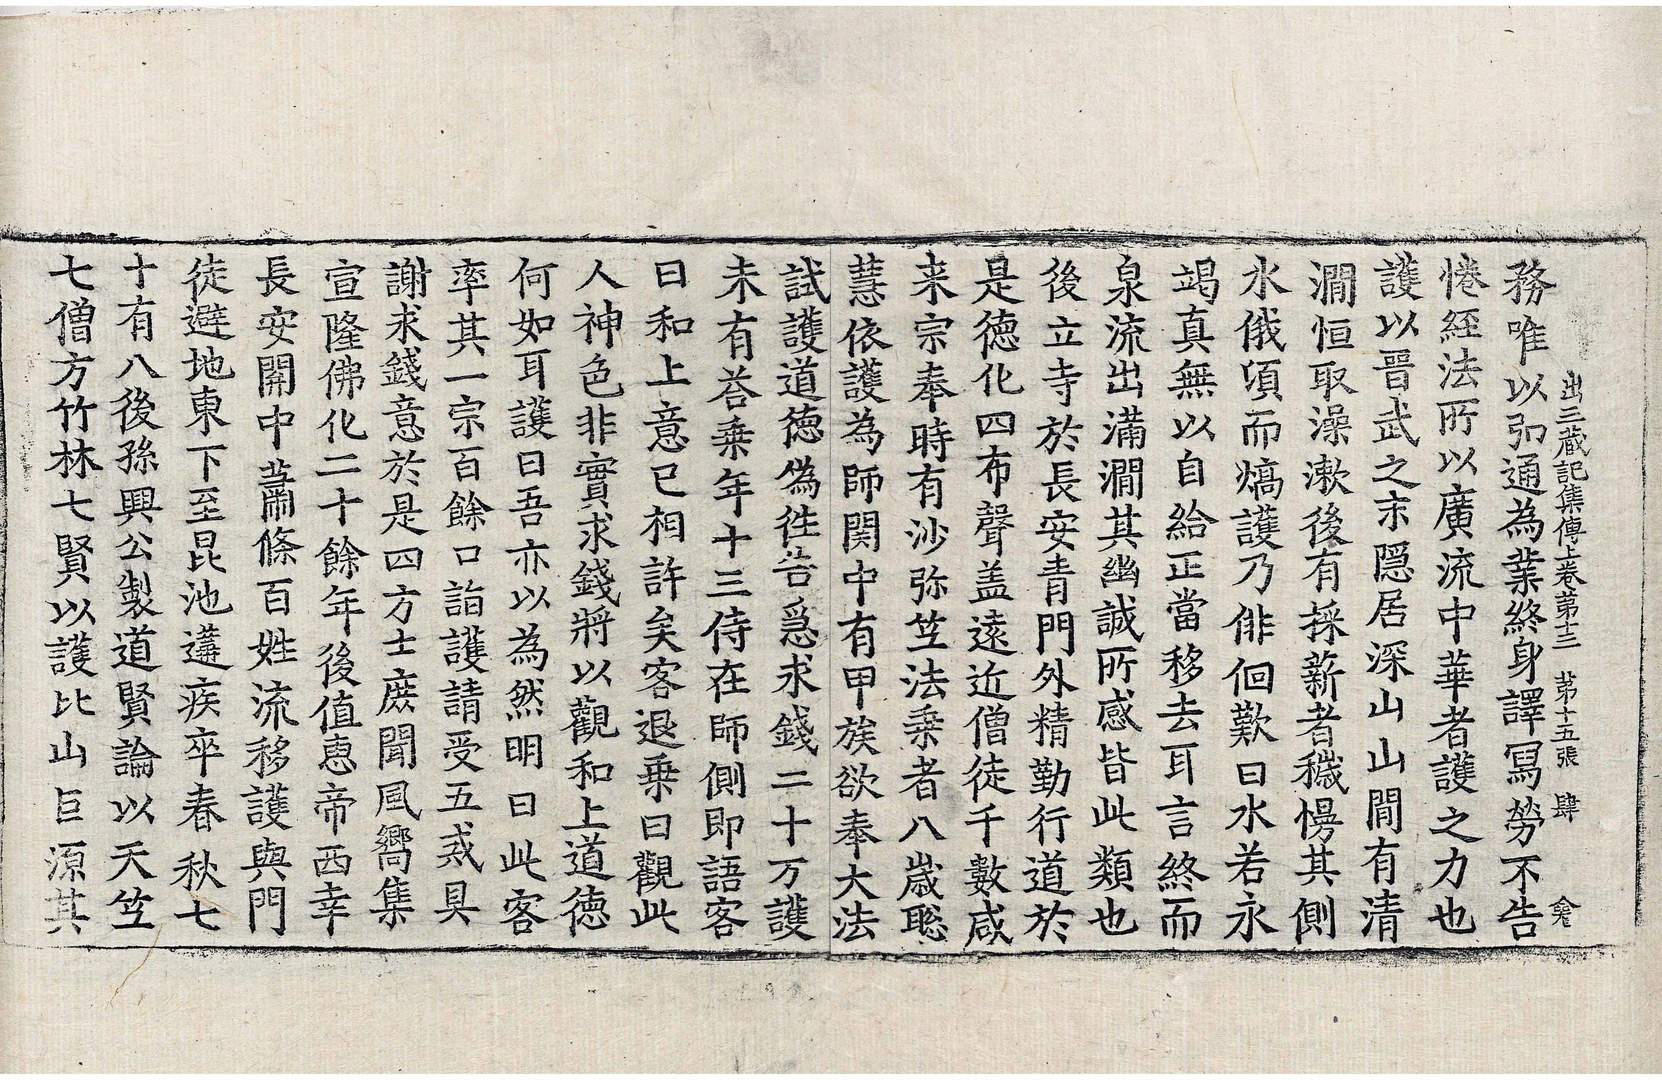 出三藏記集傳上卷第十三 第十五張 肆
務唯以弘通為業終身譯寫勞不告
惓經法所以廣流中華者護之力也
護以晋武之末隠居深山山間有清
澗恒取澡漱後有採薪者穢慢其側
水俄湏而熇護乃俳佪歎曰水若永
竭真無以自給正當移去耳言終而
泉流出滿澗其幽誠所感皆此類也
後立寺於長安青門外精勤行道於
是德化四布聲盖遠近僧徒千數咸
来宗奉時有沙弥竺法乗者八嵗聡
慧依護為師関中有甲族欲奉大法
試護道德偽徃告急求錢二十万護
未有荅乗年十三侍在師側即語客
曰和上意已相許矣客退乗曰觀此
人神色非實求錢將以觀和上道德
何如耳護曰吾亦以為然明日此客
率其一宗百餘口詣護請受五戒具
謝求錢意於是四方士庻聞風嚮集
宣隆佛化二十餘年後值惠帝西幸
長安關中蕭條百姓流移護與門
徒避地東下至昆池遘疾卒春秋七
十有八後孫興公製道賢論以天竺
七僧方竹林七賢以護比山巨源其